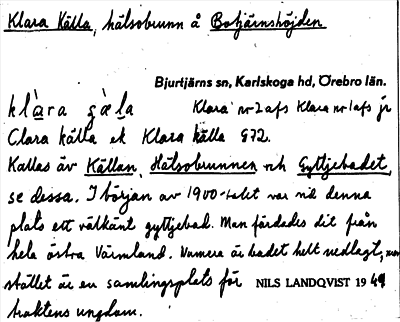 Klara Källa, hälsobrunn å Botjärnshöjden
Bjurtjärns sn, Karlskoga hd, Örebro län.
klàra çæ̀la Klara nr 2 afs Klara nr 1 afs jr
Clara källa ek Klara källa G72.
Kallas äv Källan, Hälsobrunnen och Gyttjebadet,
se dessa. I början av 1900-talet var vid denna
plats ett välkänt gyttjebad. Man färdades dit från
hela östra Värmland. Numera är badet helt nedlagt, men
stället är en samlingsplats för NILS LANDQVIST 1949
traktens ungdom.